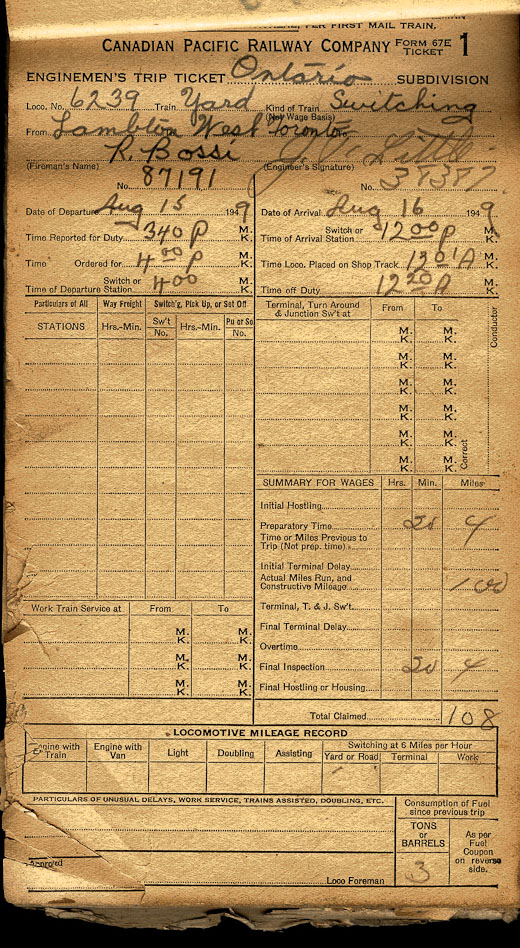 PER FIRST MAIL TRAIN.
CANADIAN PACIFIC RAILWAY COMPANY FORM 67E TICKET 1
ENGINEMEN'S TRIP TICKET Ontario SUBDIVISION
Loco. No. 6239 Train Yard Kind of Train Switching
(Not Wage Basis)
From Lambton West Toronto
R. Bossi
(Fireman's Name) (Engineer's Signature)
No. 87191 No.
Date of Departure Aug 15 1949 Date of Arrival Aug 16 1949
Time Reported for Duty 340 P M. K. Switch or Time of Arrival Station 1200 P M. K.
Time Ordered for 400 P M. K. Time Loco. Placed on Shop Track 1201 A M. K.
Switch or Time of Departure Station 400 M. K. Time off Duty 1220 A M. K.
Particulars of All Way Freight Switch'g, Pick Up, or Set Off
STATIONS Hrs.-Min. Sw't No. Hrs.-Min. Pu or So No.
Terminal, Turn Around & Junction Sw't at From To
Conductor
M. K. M. K.
M. K. M. K.
M. K. M. K.
M. K. M. K.
M. K. M. K.
M. K. M. K.
Correct
SUMMARY FOR WAGES Hrs. Min. Miles
Initial Hostling
Preparatory Time 20 4
Time or Miles Previous to Trip (Not prep. time)
Initial Terminal Delay
Actual Miles Run, and Constructive Mileage 100
Terminal, T. & J. Sw't.
Final Terminal Delay
Overtime
Final Inspection 20 4
Final Hostling or Housing
Total Claimed 108
Work Train Service at From To
M. K. M. K.
M. K. M. K.
M. K. M. K.
LOCOMOTIVE MILEAGE RECORD
Engine with Train Engine with Van Light Doubling Assisting Switching at 6 Miles per Hour
Yard or Road Terminal Work
PARTICULARS OF UNUSUAL DELAYS, WORK SERVICE, TRAINS ASSISTED, DOUBLING, ETC.
Consumption of Fuel since previous trip
TONS or BARRELS As per Fuel Coupon on reverse side.
3
Approved
Loco Foreman